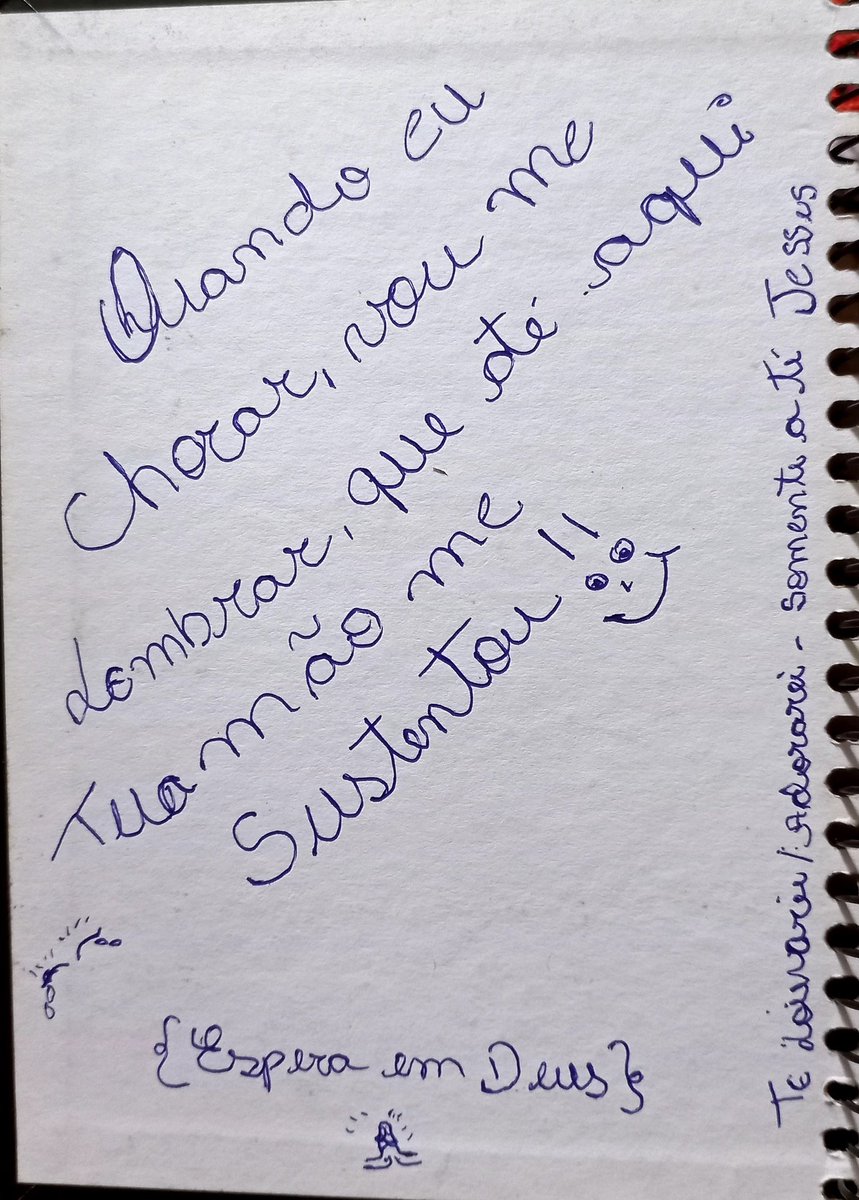 Quando eu
Chorar, vou me
Lembrar, que até aqui
Tua mão me
Sustentou!!
{Espera em Deus}
Te Louvarei/Adorarei - Somente a ti Jesus